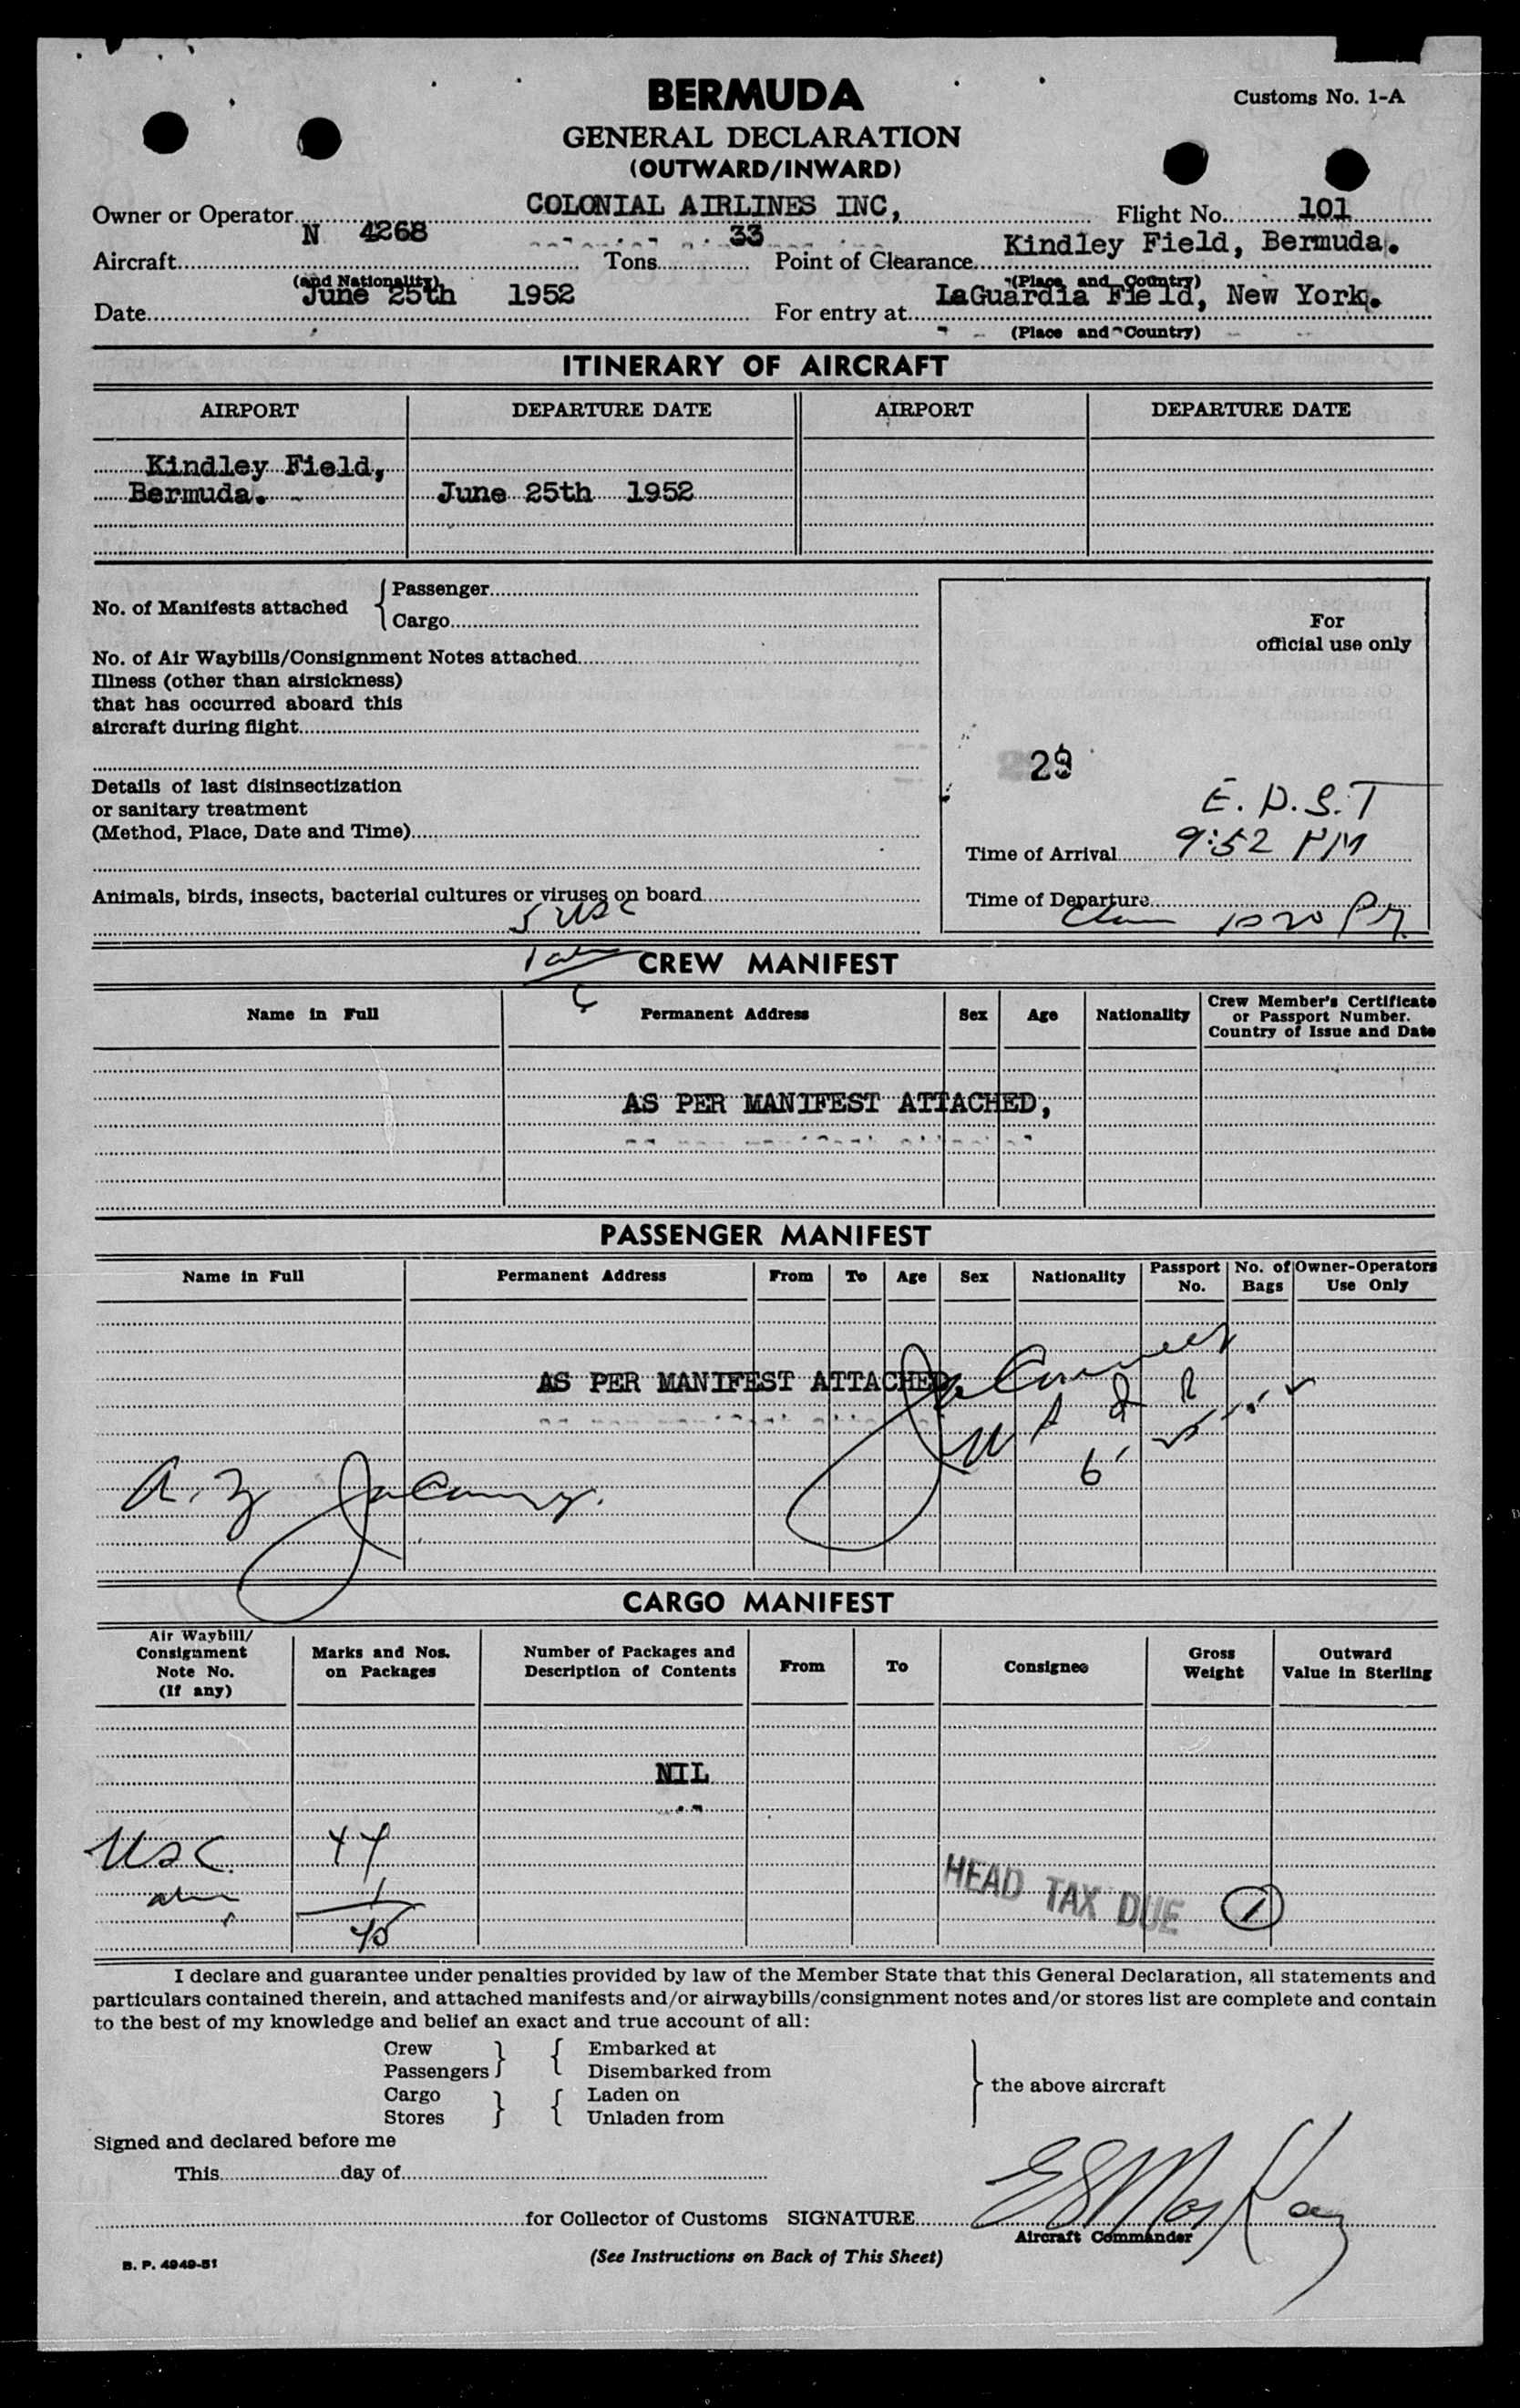 BERMUDA
Customs No. 1-A
GENERAL DECLARATION
(OUTWARD/INWARD)
Owner or Operator COLONIAL AIRLINES INC, Flight No. 101
Aircraft N 4268 Tons 33 Point of Clearance Kindley Field, Bermuda.
(and Nationality) (Place and Country)
Date June 25th 1952 For entry at LaGuardia Field, New York.
(Place and Country)
ITINERARY OF AIRCRAFT
AIRPORT DEPARTURE DATE AIRPORT DEPARTURE DATE
Kindley Field,
Bermuda. June 25th 1952
No. of Manifests attached { Passenger
Cargo
For
official use only
No. of Air Waybills/Consignment Notes attached
Illness (other than airsickness)
that has occurred aboard this
aircraft during flight
29
Details of last disinsectization
or sanitary treatment
(Method, Place, Date and Time)
E.D.S.T
Time of Arrival 9:52 PM
Animals, birds, insects, bacterial cultures or viruses on board
Time of Departure
5 USC
CREW MANIFEST
Name in Full Permanent Address Sex Age Nationality Crew Member's Certificate
or Passport Number.
Country of Issue and Date
AS PER MANIFEST ATTACHED,
PASSENGER MANIFEST
Name in Full Permanent Address From To Age Sex Nationality Passport No. No. of Bags Owner-Operators Use Only
AS PER MANIFEST ATTACHED.
CARGO MANIFEST
Air Waybill/
Consignment
Note No.
(If any)
Marks and Nos.
on Packages
Number of Packages and
Description of Contents
From To Consignee
Gross
Weight
Outward
Value in Sterling
NIL
USC 44
1
45
HEAD TAX DUE 1
I declare and guarantee under penalties provided by law of the Member State that this General Declaration, all statements and
particulars contained therein, and attached manifests and/or airwaybills/consignment notes and/or stores list are complete and contain
to the best of my knowledge and belief an exact and true account of all:
Crew } { Embarked at
Passengers Disembarked from
Cargo } { Laden on
Stores Unladen from
} the above aircraft
Signed and declared before me
This day of
for Collector of Customs SIGNATURE
Aircraft Commander
B. P. 4949-51
(See Instructions on Back of This Sheet)